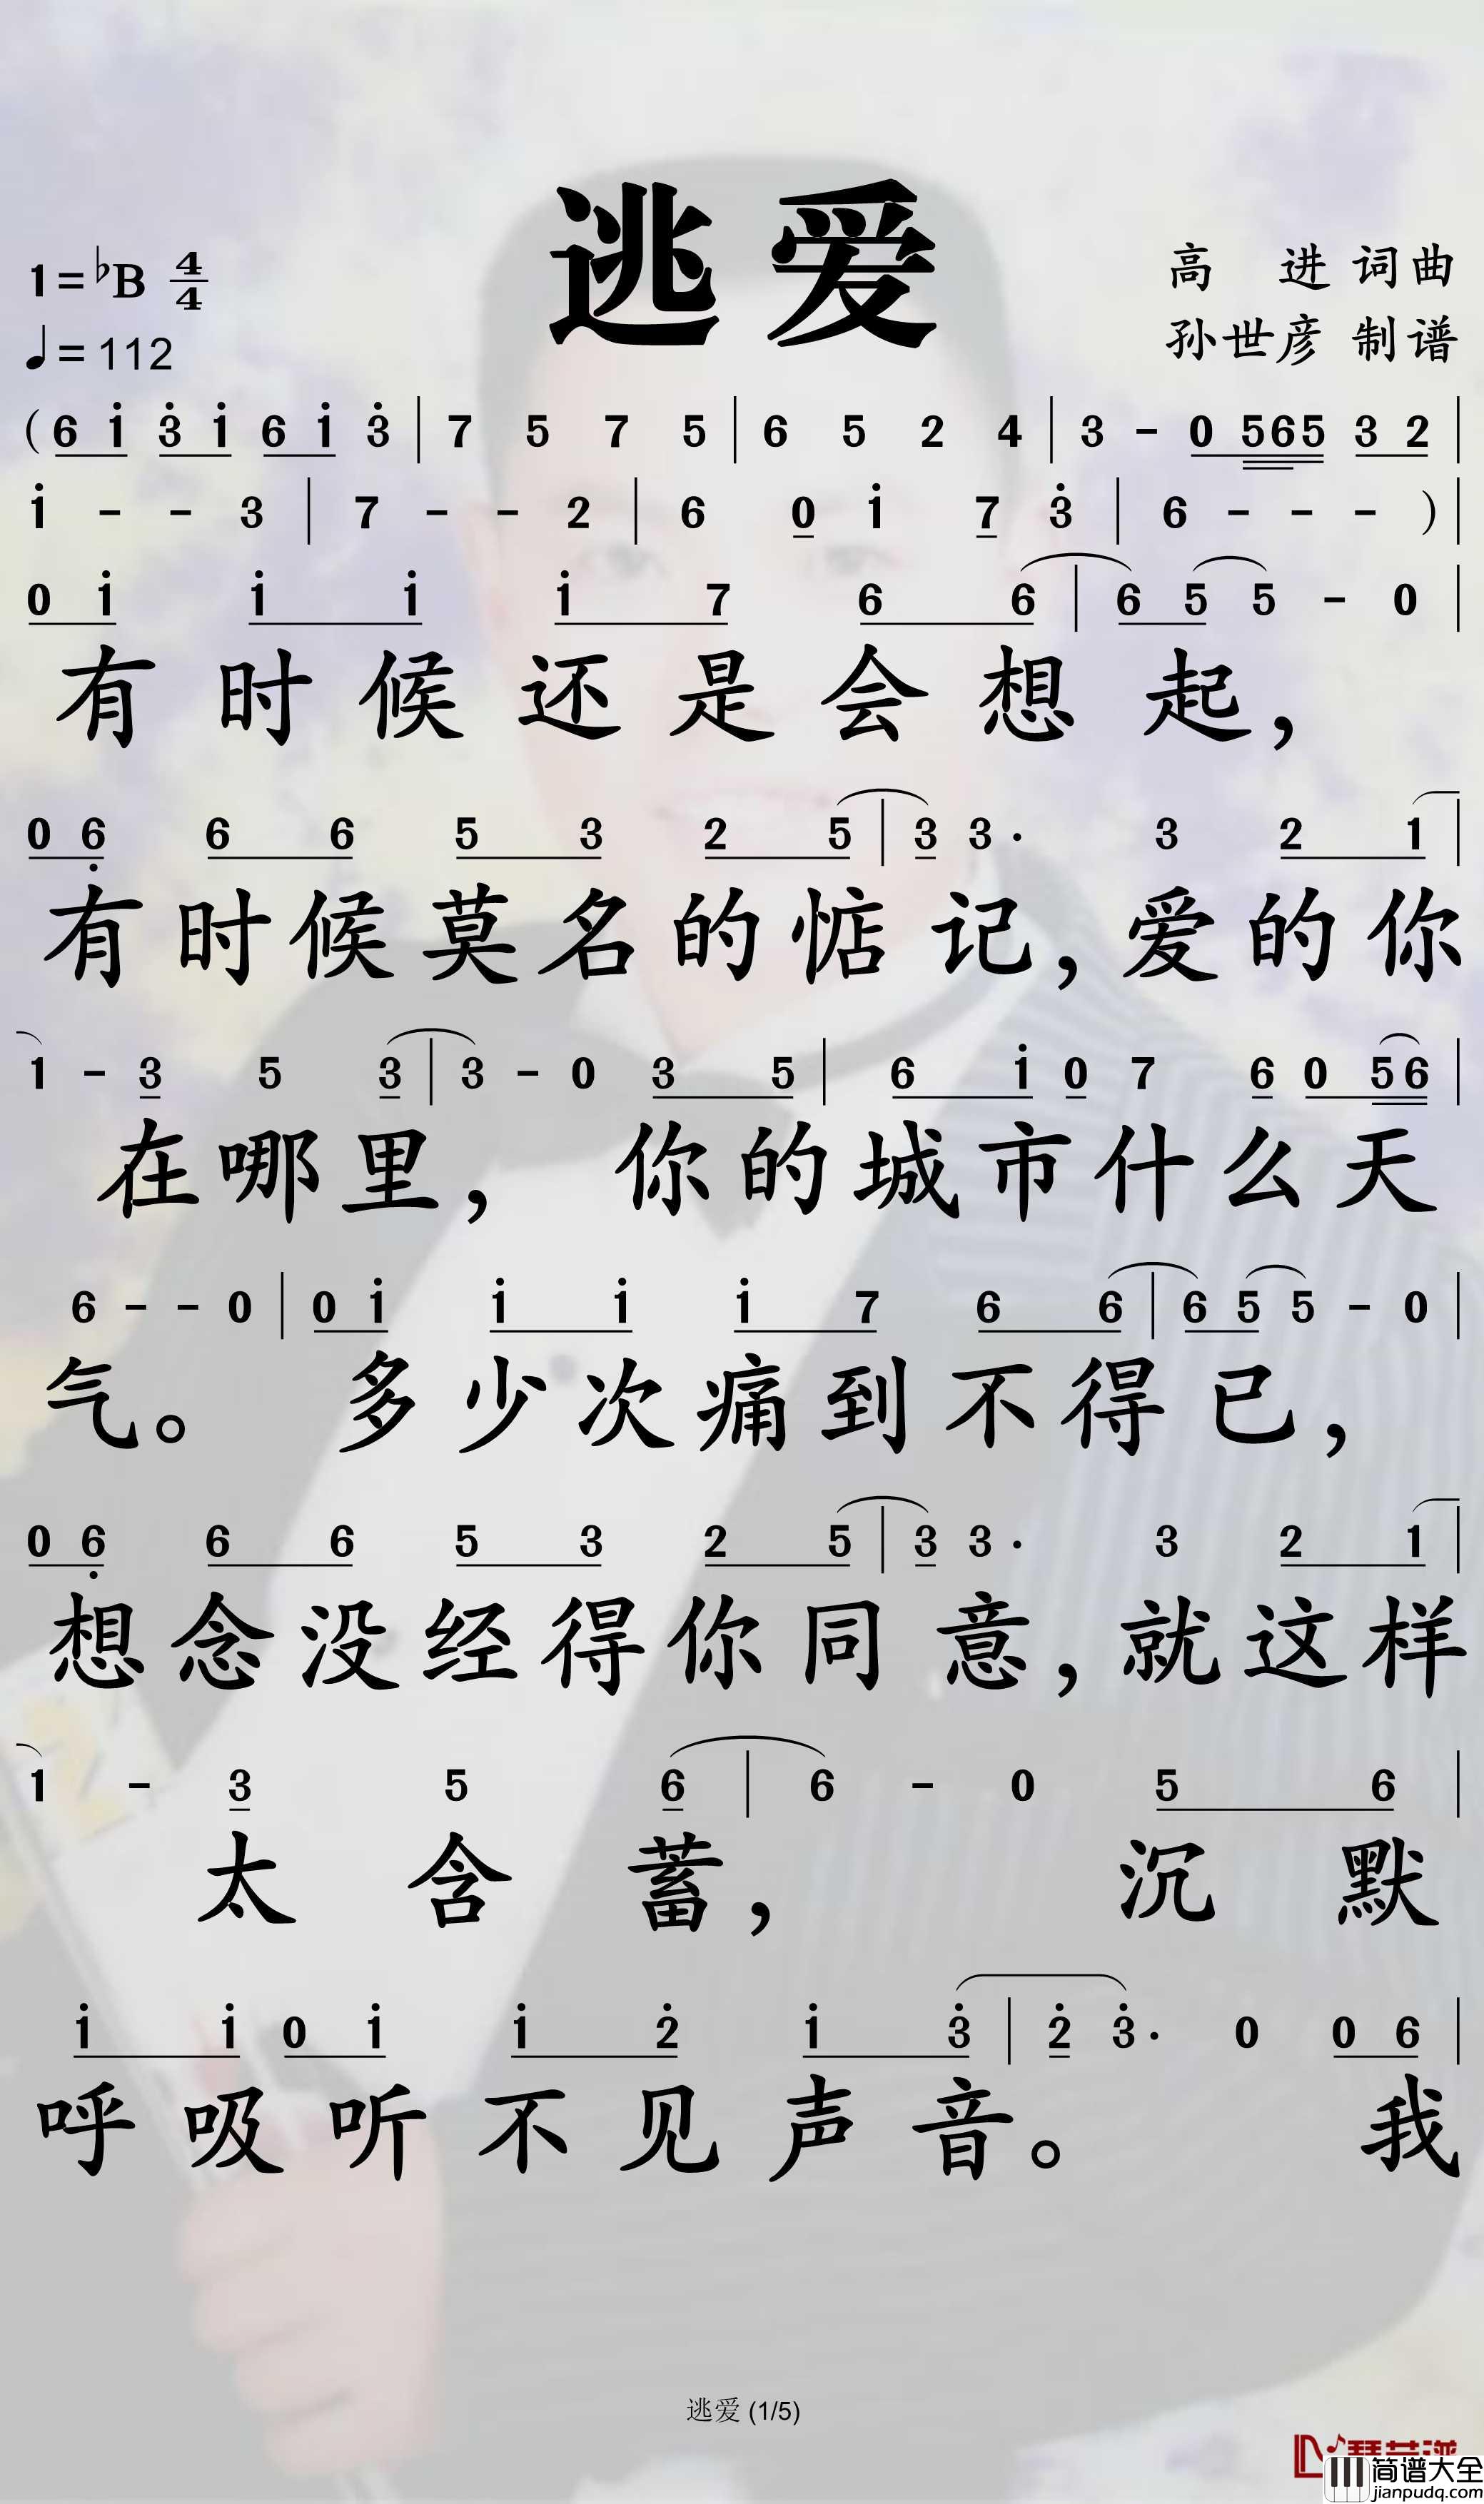 逃爱
1=♭B 4/4
高 进 词曲
♩=112
孙世彦 制谱
(6 i 3̇ i 6 i 3̇ | 7 5 7 5 | 6 5 2 4 | 3 - 0 565 3 2 |
i - - 3 | 7 - - 2 | 6 0 i 7 3̇ | 6 - - - ) |
0 i i i i 7 6 6 | 6 5 5 - 0 |
有时候还是会想起，
0 6̣ 6 6 5 3 2 5 | 3 3· 3 2 1 |
有时候莫名的惦记，爱的你
1 - 3 5 3 | 3 - 0 3 5 | 6 i 0 7 6 0 56 |
在哪里，你的城市什么天
6 - - 0 | 0 i i i i 7 6 6 | 6 5 5 - 0 |
气。多少次痛到不得已，
0 6̣ 6 6 5 3 2 5 | 3 3· 3 2 1 |
想念没经得你同意，就这样
1 - 3 5 6 | 6 - 0 5 6 |
太含蓄，沉默
i i 0 i i 2̇ i 3̇ | 2̇ 3̇· 0 0 6 |
呼吸听不见声音。我
逃爱 (1/5)
简谱大全
jianpudq.com